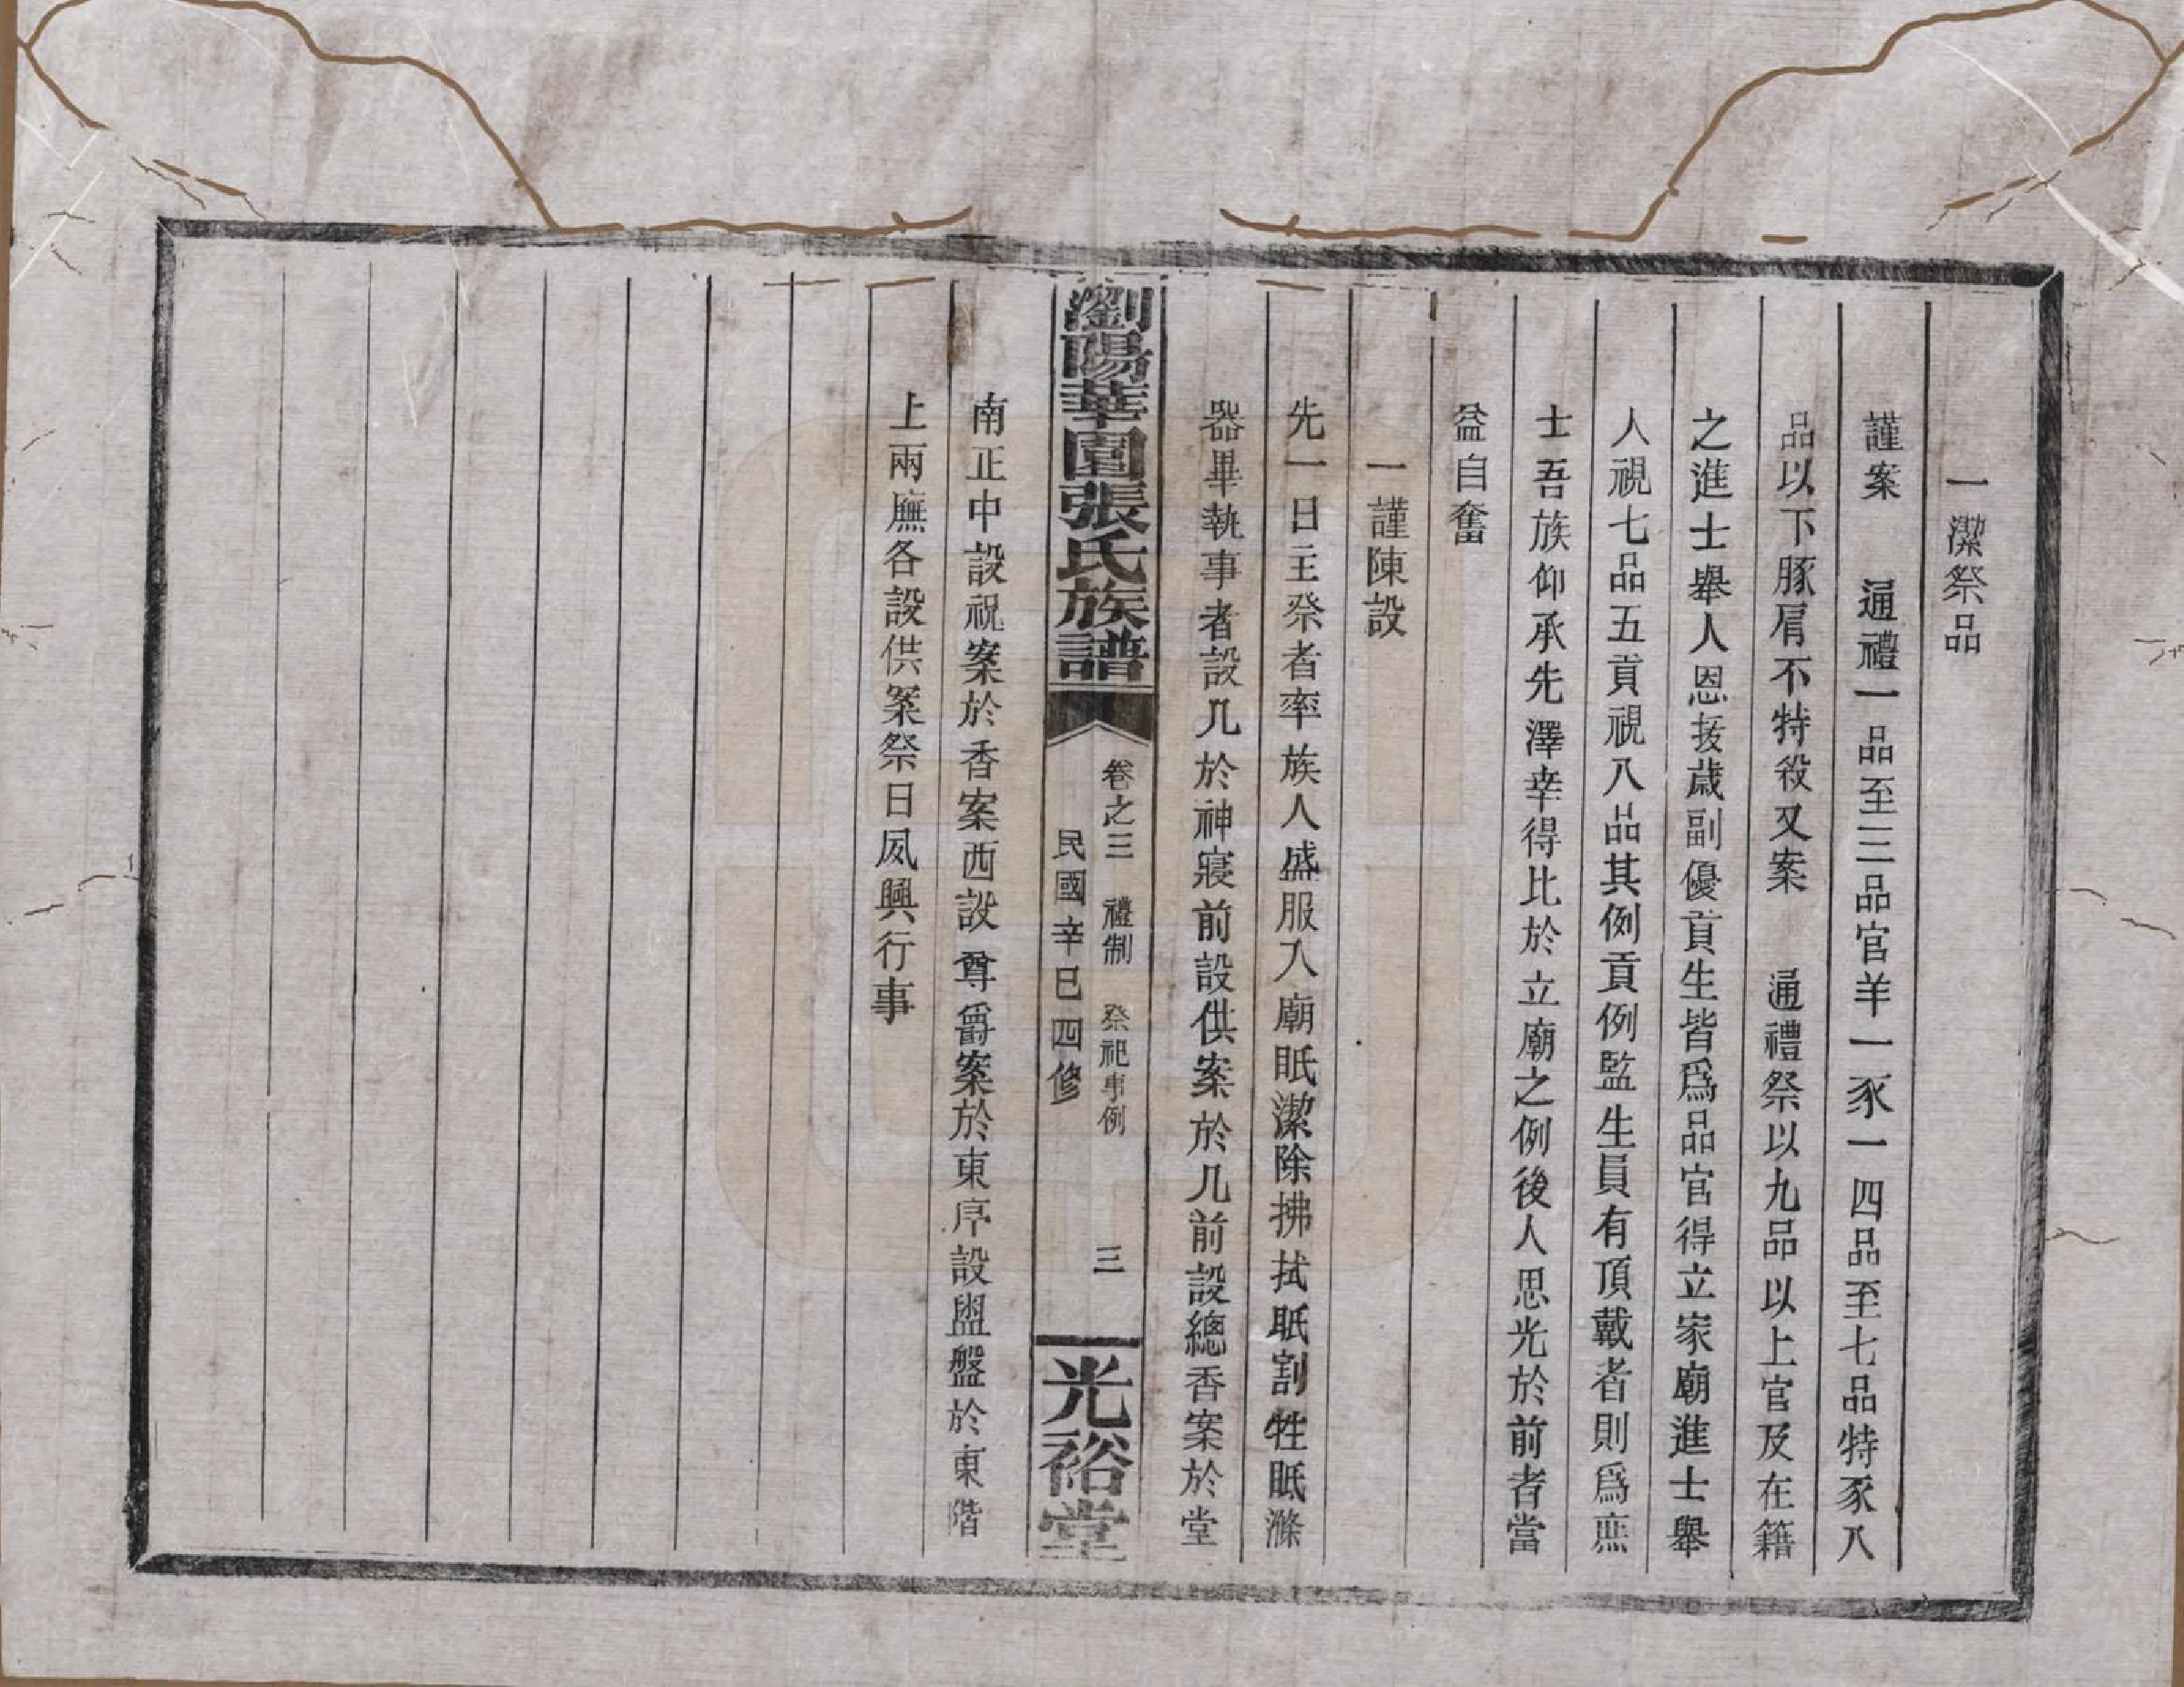 一潔祭品
謹案　通禮一品至三品官羊一豕一四品至七品特豕八
品以下豚肩不特殺又案　通禮祭以九品以上官及在籍
之進士舉人恩拔歲副優貢生皆爲品官得立家廟進士舉
人視七品五貢視八品其例貢例監生員有頂戴者則爲庶
士吾族仰承先澤幸得比於立廟之例後人思光於前者當
益自奮
一謹陳設
先一日主祭者率族人盛服入廟眂潔除拂拭眂割牲眂滌
器畢執事者設几於神寢前設供案於几前設總香案於堂
瀏陽華園張氏族譜
卷之三　禮制　祭祀事例　三
民國辛巳四修
光裕堂
南正中設祝案於香案西設尊爵案於東序設盥盤於東階
上兩廡各設供案祭日夙興行事